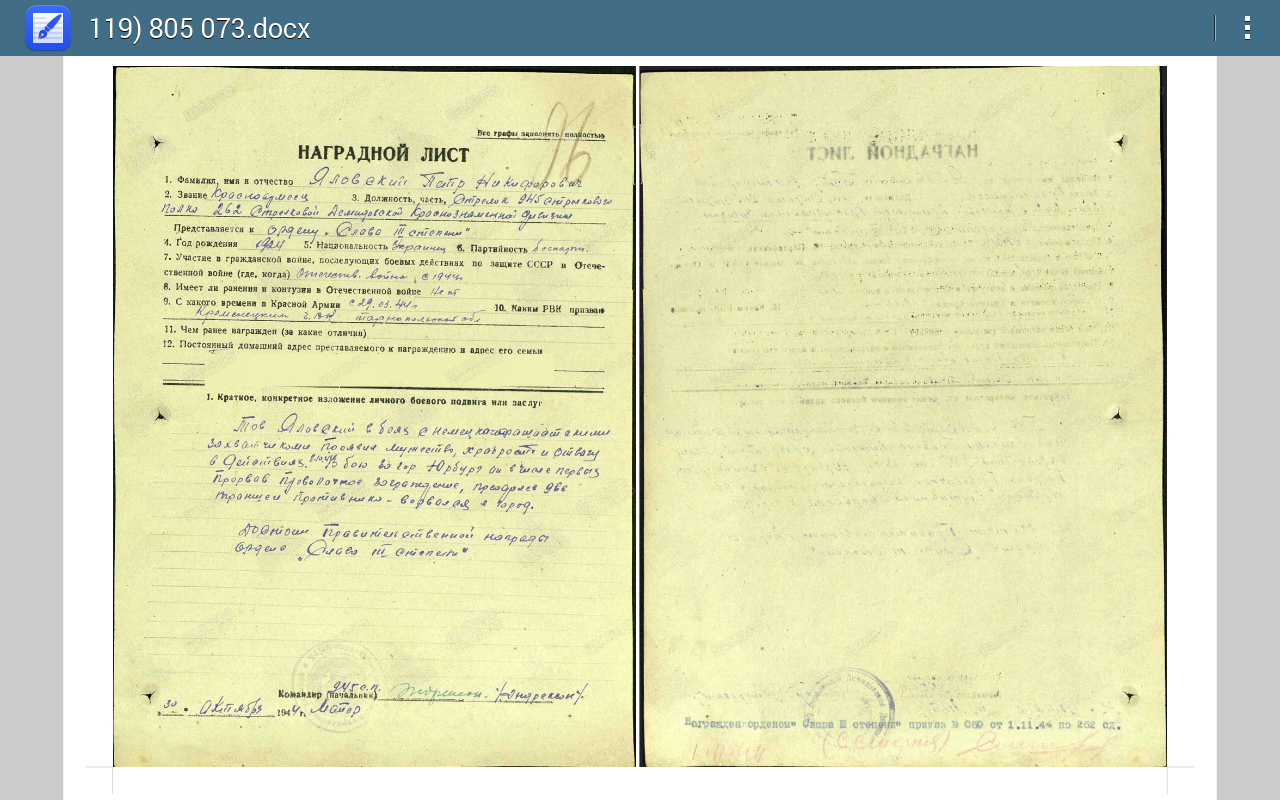 119) 805 073.docx
Все графы заполнять полностью
НАГРАДНОЙ ЛИСТ
1. Фамилия, имя и отчество Яловский Пётр Никифорович
2. Звание Красноармеец 3. Должность, часть, Стрелок 945 стрелкового
полка 262 Стрелковой Демидовской Краснознаменной дивизии
Представляется к ордену „Слава III степени"
4. Год рождения 1924 5. Национальность Украинец 6. Партийность беспарт.
7. Участие в гражданской войне, последующих боевых действиях по защите СССР и Отече-
ственной войне (где, когда) Отечеств. война с 1944г.
8. Имеет ли ранения и контузии в Отечественной войне Нет
9. С какого времени в Красной Армии с 29.03.44г 10. Каким РВК призван
Кременецким тарнопольской обл
11. Чем ранее награжден (за какие отличия)
12. Постоянный домашний адрес преставляемого к награждению и адрес его семьи
1. Краткое, конкретное изложение личного боевого подвига или заслуг
Тов Яловский в боях с немецко
захватчиками проявил мужество, храбрость и отвагу
в действиях. В бою за гор Юрбург он в числе первых
прорвав проволочное заграждение, две
траншеи противника - ворвался в город.
Достоин Правительственной награды
ордена „Слава III степени"
945 с.п.
Командир (начальник) /Андрексон/.
30 " октября 1944 г. Майор
НАГРАДНОЙ ЛИСТ
Награжден орденом "Слава III степени" приказ № 089 от 1.11.44 по 262 сд.